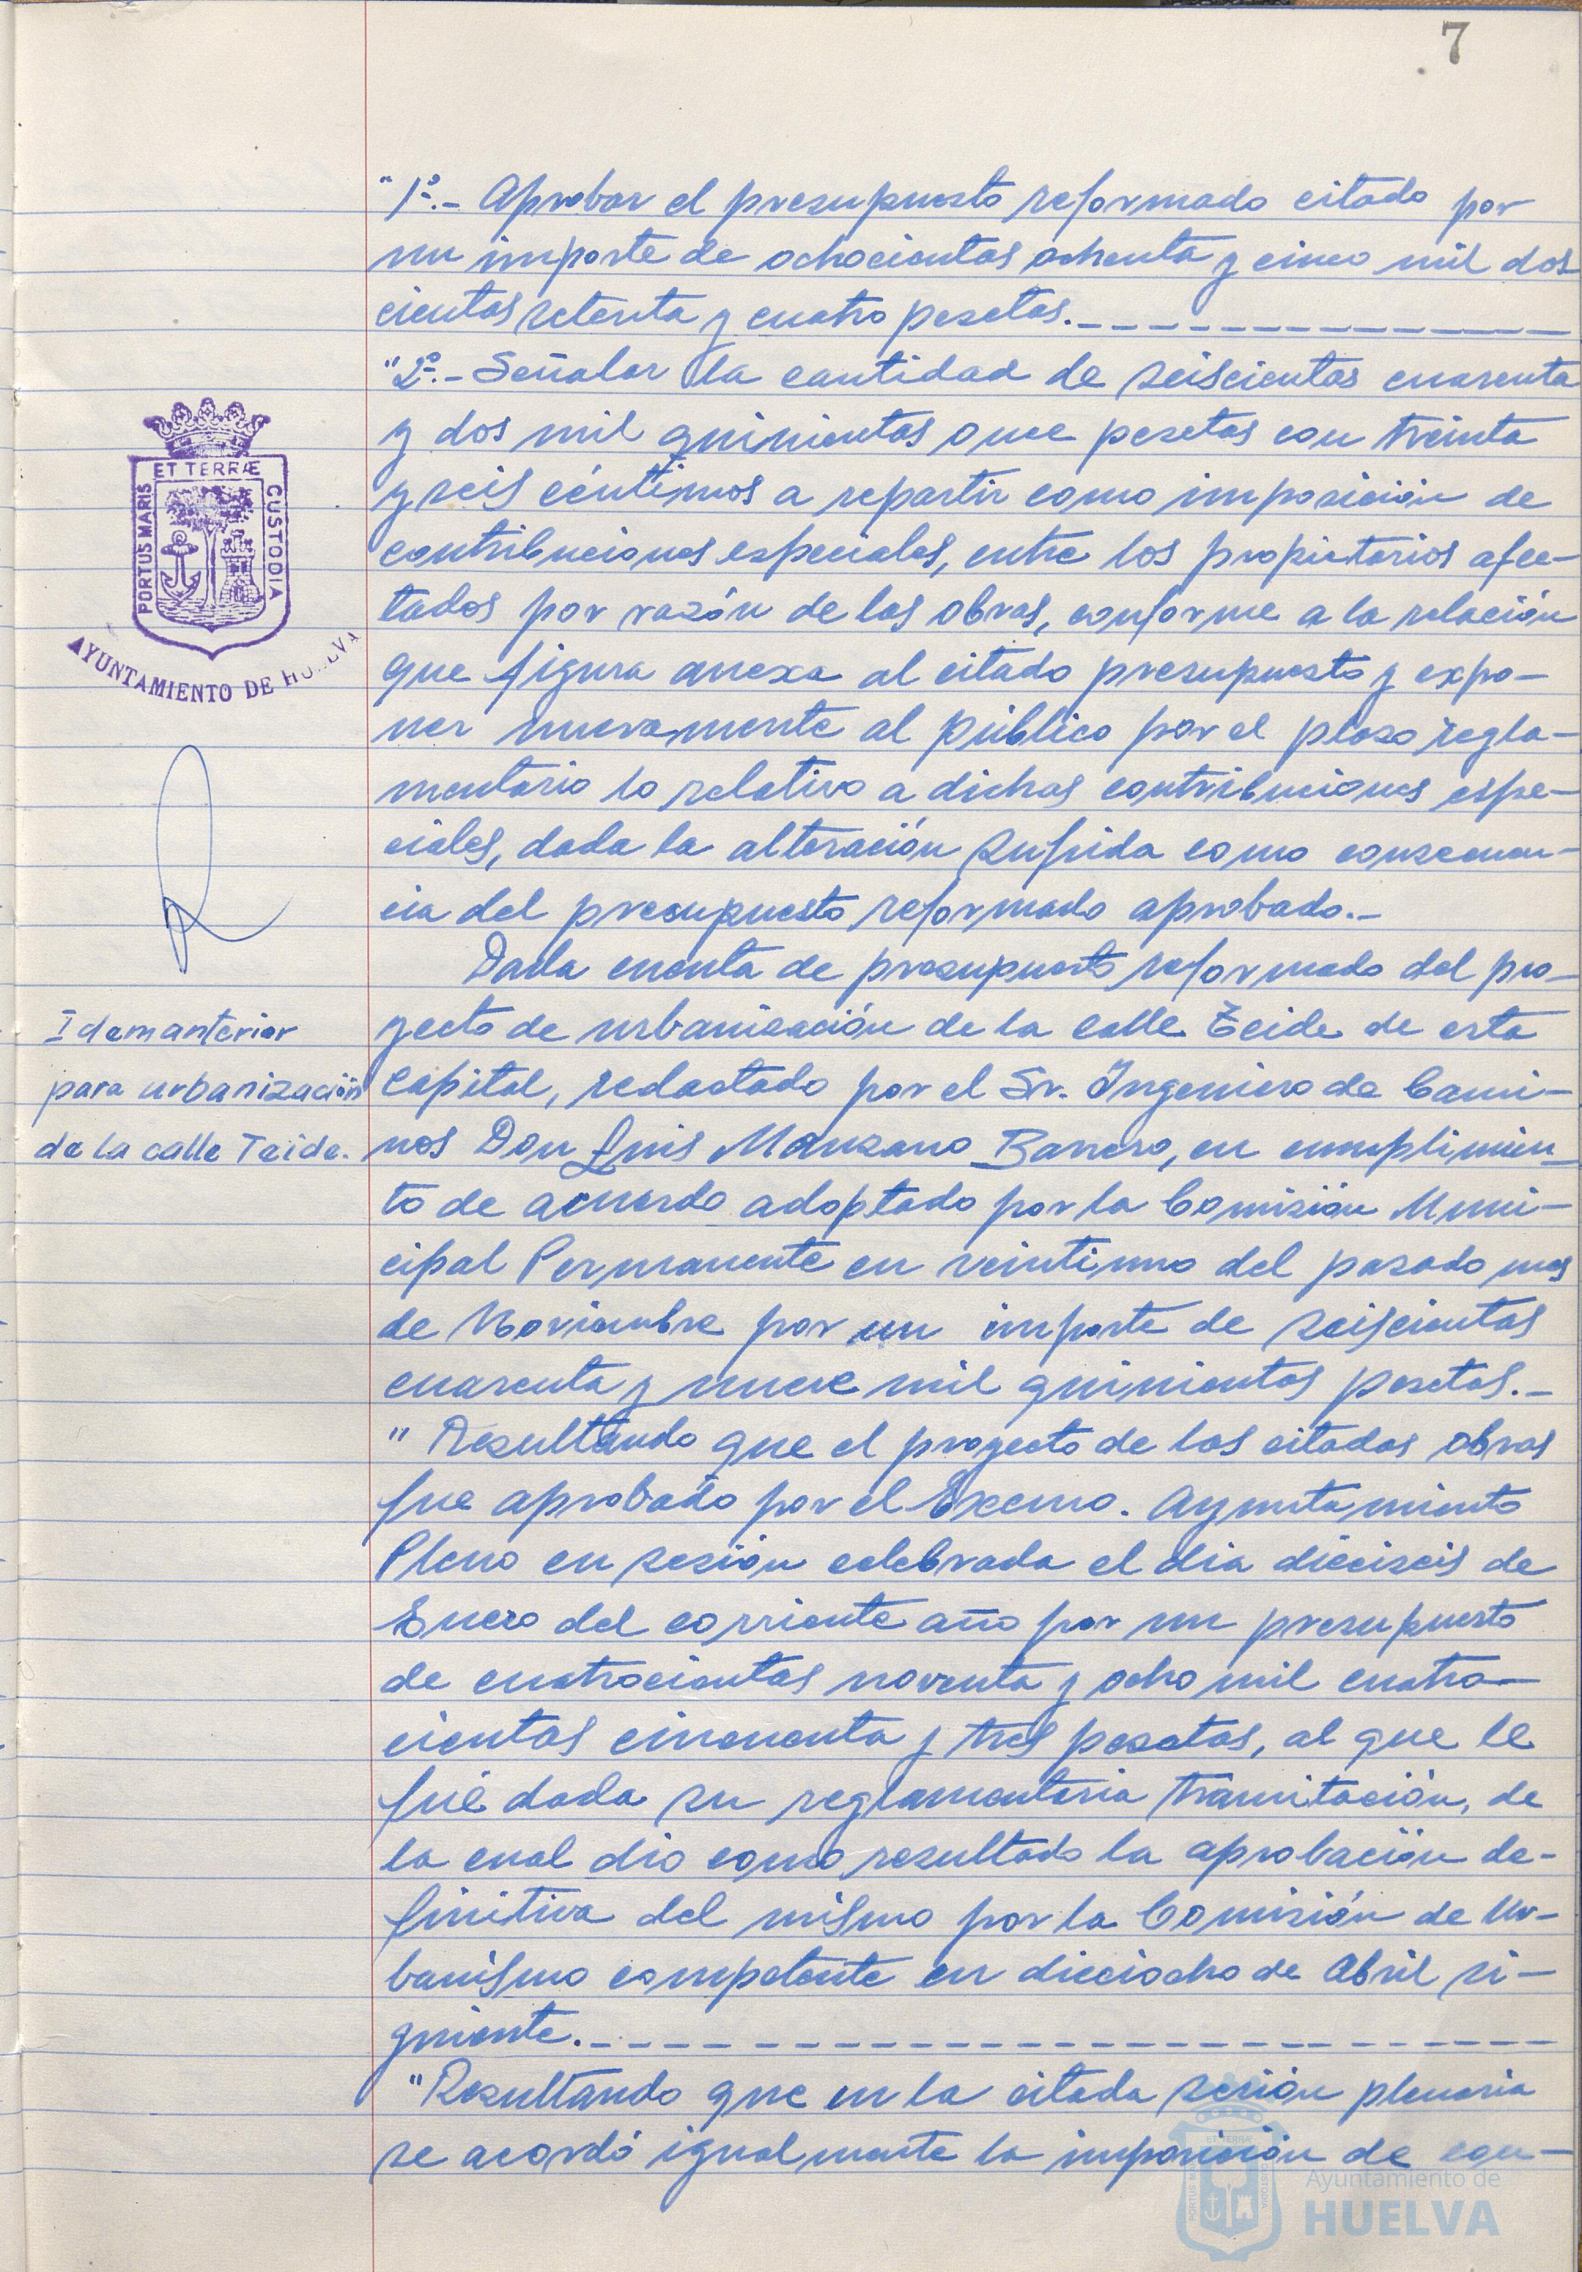 7
"1º.- Aprobar el presupuesto reformado citado por
un importe de ochocientas ochenta y cinco mil dos
cientas setenta y cuatro pesetas.
"2º.- Señalar la cantidad de seiscientas cuarenta
y dos mil quinientas once pesetas con treinta
y seis céntimos a repartir como imposición de
contribuciones especiales, entre los propietarios afec-
tados por razón de las obras, conforme a la relación
que figura anexa al citado presupuesto y expo-
ner nuevamente al público por el plazo regla-
mentario lo relativo a dichas contribuciones espe-
ciales, dada la alteración sufrida como consecuen-
cia del presupuesto reformado aprobado.-
ET TERRÆ
PORTUS MARIS
CUSTODIA
AYUNTAMIENTO DE HUELVA
Idem anterior
para urbanización
de la calle Teide.
Dada cuenta de presupuesto reformado del pro-
yecto de urbanización de la calle Teide de esta
Capital, redactado por el Sr. Ingeniero de Cami-
nos Don Luis Manzano Barrero, en cumplimien-
to de acuerdo adoptado por la Comisión Muni-
cipal Permanente en veintiuno del pasado mes
de Noviembre por un importe de seiscientas
cuarenta y nueve mil quinientas pesetas.-
"Resultando que el proyecto de las citadas obras
fue aprobado por el Excmo. Ayuntamiento
Pleno en sesión celebrada el dia dieciseis de
Enero del corriente año por un presupuesto
de cuatrocientas noventa y ocho mil cuatro-
cientas cincuenta y tres pesetas, al que le
fué dada su reglamentaria tramitación, de
la cual dio como resultado la aprobación de-
finitiva del mismo por la Comisión de Ur-
banismo competente en dieciocho de Abril si-
guiente.
"Resultando que en la citada sesión plenaria
se acordó igualmente la imposición de con-
ET TERRÆ
PORTUS MARIS
CUSTODIA
Ayuntamiento de
HUELVA